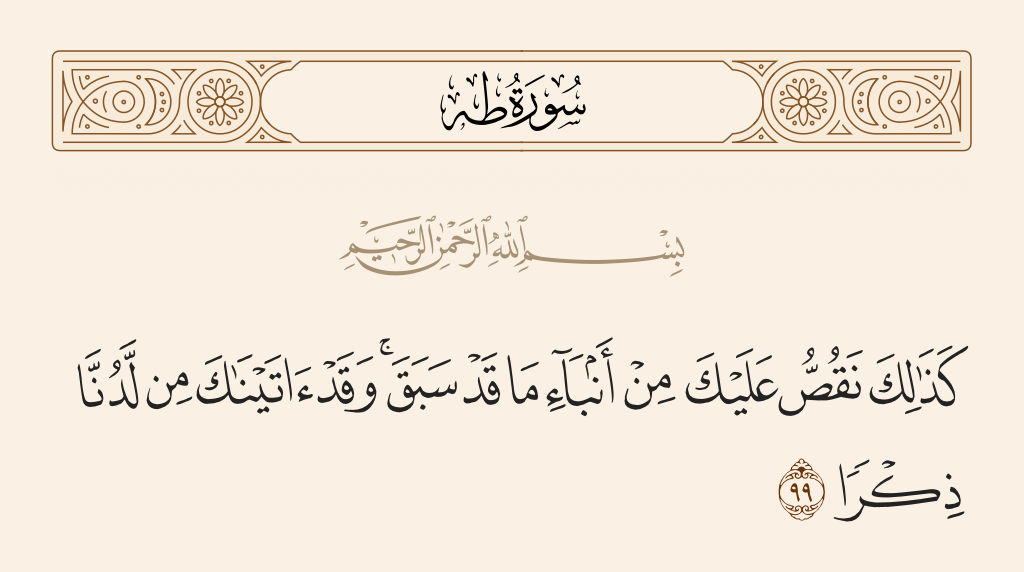 سُورَةُ طه
بِسْمِ ٱللَّهِ ٱلرَّحْمَٰنِ ٱلرَّحِيمِ
كَذَٰلِكَ نَقُصُّ عَلَيْكَ مِنْ أَنۢبَآءِ مَا قَدْ سَبَقَ ۚ وَقَدْ ءَاتَيْنَٰكَ مِن لَّدُنَّا
ذِكْرًا ٩٩